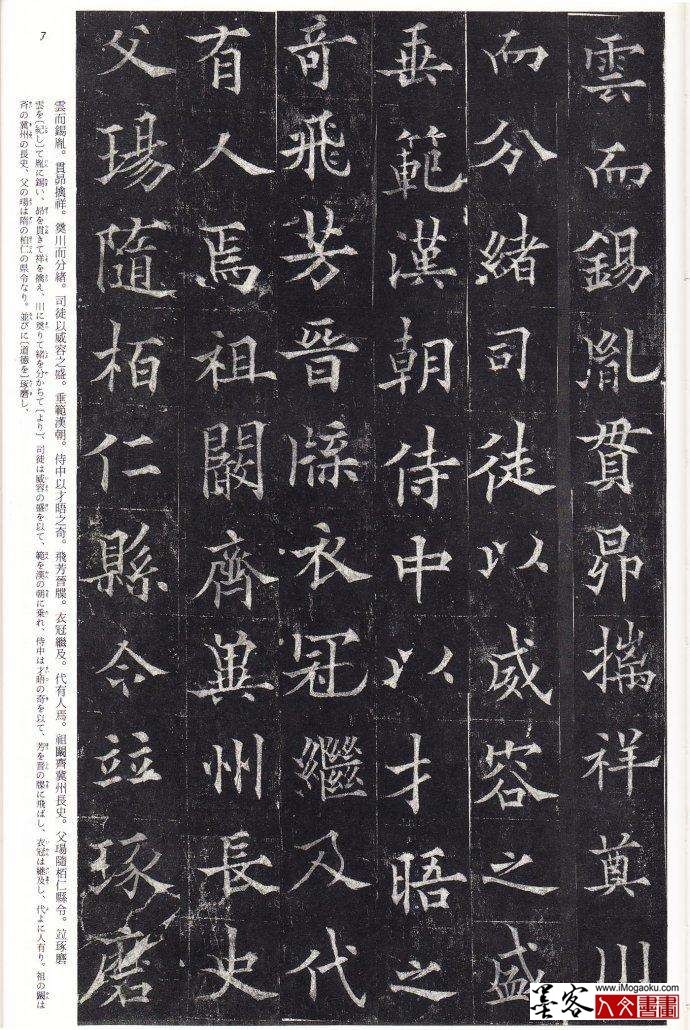 雲而錫胤貫昴擕祥奠川
而分緒司徒以威容之盛
垂範漢朝侍中以才晤之
奇飛芳晉牒衣冠繼及代
有人焉祖闞齊冀州長史
父瑒隨栢仁縣令竝琢磨
雲而錫胤。貫昴擒祥。奠川而分緒。司徒以威容之盛。垂範漢朝。侍中以才晤之奇。飛芳晉牒。衣冠繼及。代有人焉。祖闞齊冀州長史。父瑒隨栢仁縣令。竝琢磨
雲を〔紀し〕て胤に錫い、昴を貫きて祥を擒え、川に奠りて緒を分かちて〔より〕、司徒は威容の盛を以て、範を漢の朝に垂れ、侍中は才晤の奇を以て、芳を晋の牒に飛ばし、衣冠は継及し、代よに人有り。祖の闞は
斉の冀州の長史、父の瑒は隋の柏仁の県令なり。並びに〔道徳を〕琢磨し、
7
www.iMogaoku.com
墨客人文書畫